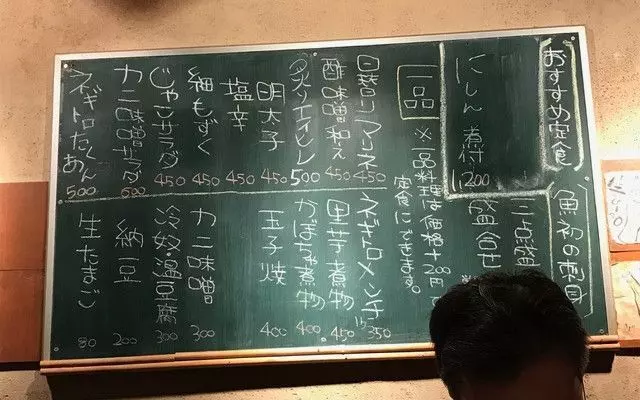 おすすめ定食
にしん煮付 1,200
魚初の刺身
三点盛
盛合せ
一品
※一品料理は価格+200円で
定食にできます。
日替りマリネ 450
酢味噌和え 450
炙りエイヒレ 500
明太子 450
塩辛 450
細もずく 450
じゃこサラダ 450
カニ味噌サラダ 600
ネギトロたくあん 500
ネギトロメンチ 350
里芋煮物 450
かぼちゃ煮物 400
玉子焼 400
カニ味噌 300
冷奴・温豆腐 300
納豆 200
生たまご 80